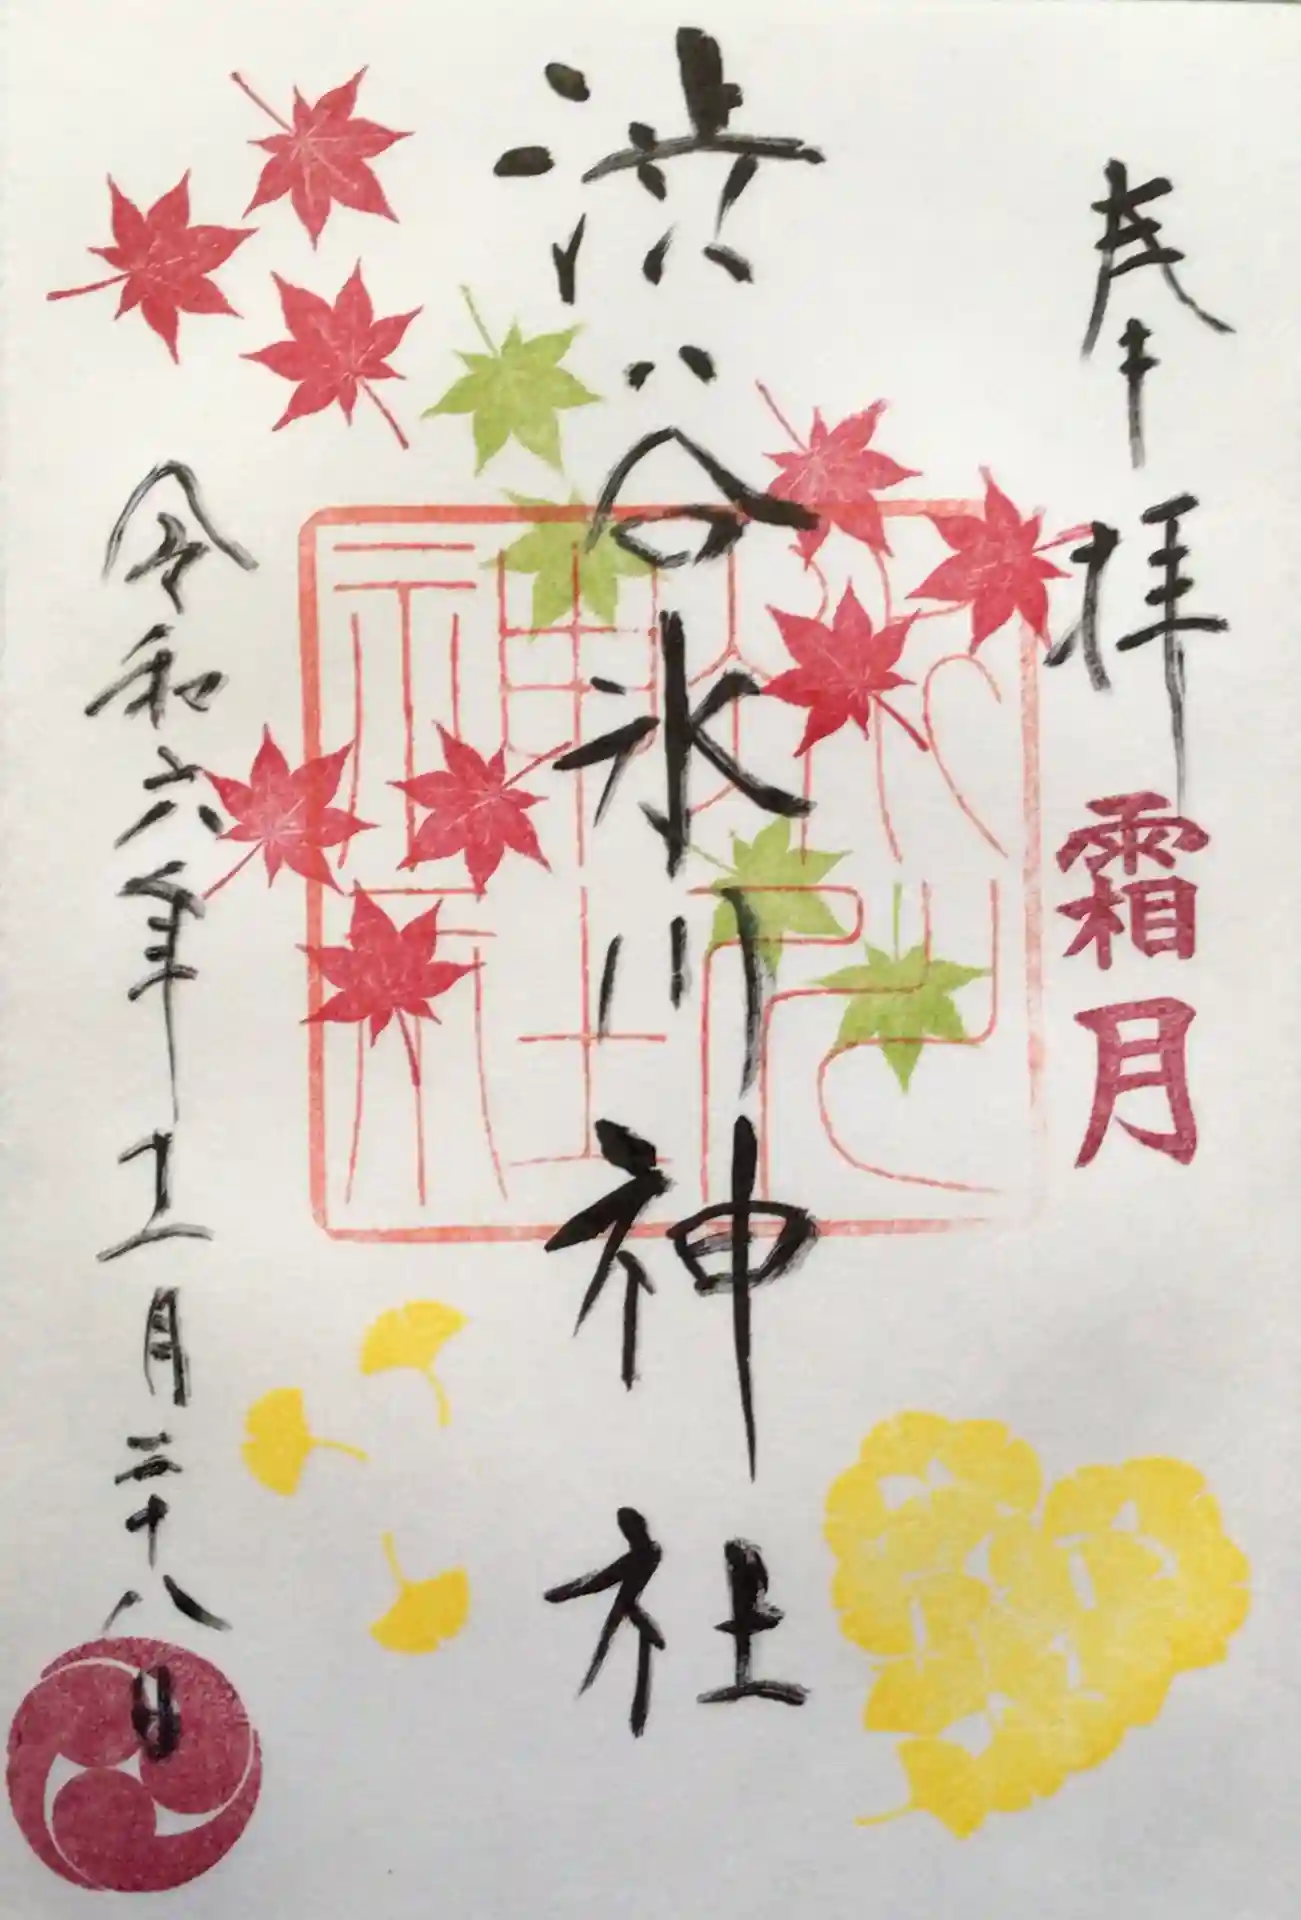 奉拝
霜月
渋谷氷川神社
令和六年十一月二十八日